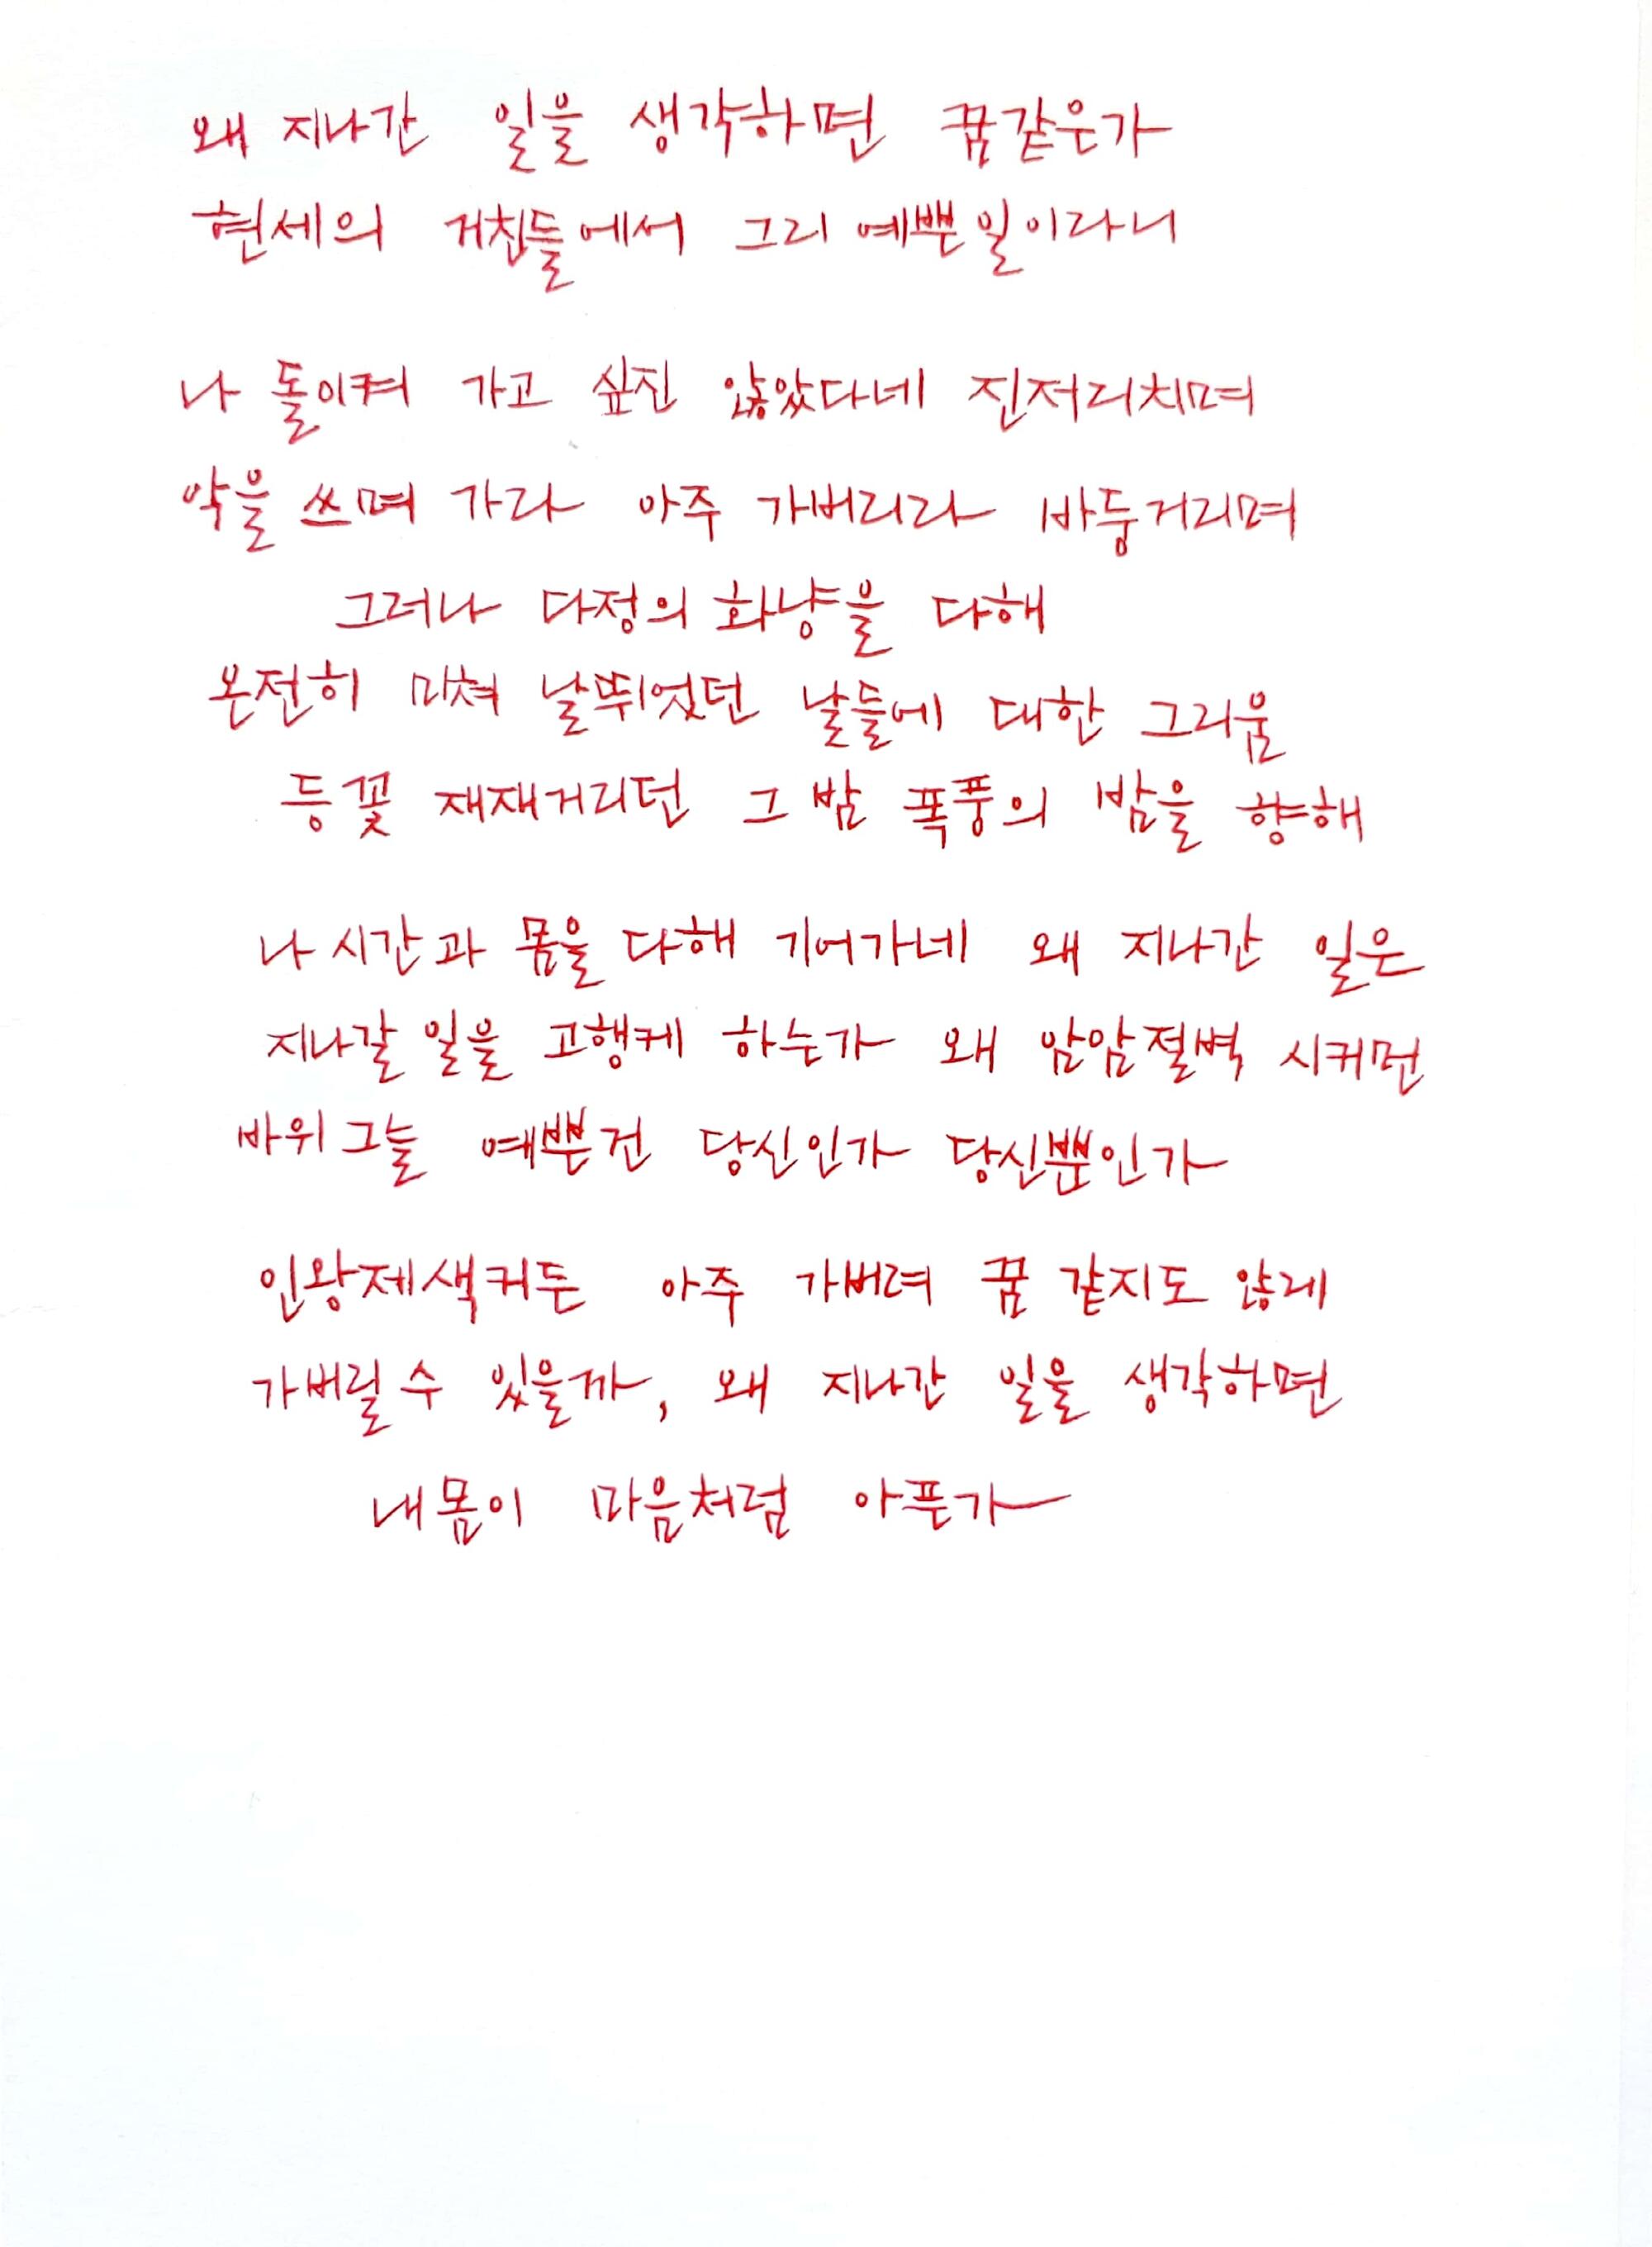 왜 지나간 일을 생각하면 꿈같은가
현세의 거친들에서 그리 예쁜 일이라니
나 돌이켜 가고 싶진 않았다네 진저리치며
악을 쓰며 가라 아주 가버리라 바둥거리며
그러나 다정의 화냥을 다해
온전히 미쳐 날뛰었던 날들에 대한 그리움
등꽃 재재거리던 그 밤 폭풍의 밤을 향해
나 시간과 몸을 다해 기어가네 왜 지나간 일은
지나갈 일을 고행케 하는가 왜 암암절벽 시커먼
바위 그늘 예쁜 건 당신인가 당신뿐인가
인왕제색커든 아주 가버려 꿈 같지도 않게
가버릴 수 있을까, 왜 지나간 일을 생각하면
내 몸이 마음처럼 아픈가